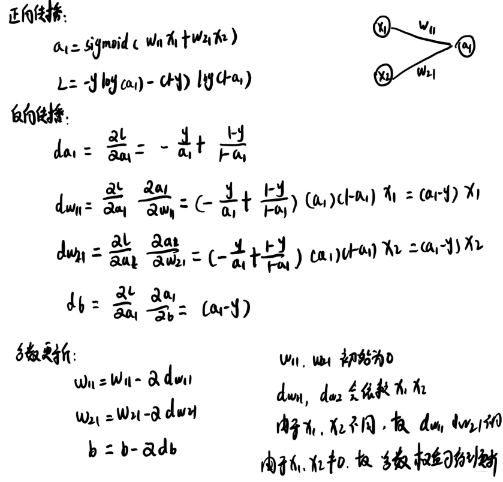 正向传播:
a₁ = sigmoid( w₁₁x₁+w₂₁x₂)
x₁ w₁₁ a₁
x₂ w₂₁
L = -y log(a₁) - (1-y) log(1-a₁)
反向传播:
da₁ = ∂L/∂a₁ = - y/a₁ + (1-y)/(1-a₁)
dw₁₁ = ∂L/∂a₁ ∂a₁/∂w₁₁ = (- y/a₁ + (1-y)/(1-a₁)) (a₁)(1-a₁) x₁ = (a₁-y) x₁
dw₂₁ = ∂L/∂a₁ ∂a₁/∂w₂₁ = (- y/a₁ + (1-y)/(1-a₁)) (a₁)(1-a₁) x₂ = (a₁-y) x₂
db = ∂L/∂a₁ ∂a₁/∂b = (a₁-y)
参数更新:
w₁₁ = w₁₁ - α dw₁₁
w₂₁ = w₂₁ - α dw₂₁
b = b - α db
w₁₁, w₂₁ 初始为0
dw₁₁, dw₂ 会依赖 x₁ x₂
由于 x₁, x₂ 不同, 故 dw₁₁ dw₂₁ 不同
由于 x₁, x₂ ≠ 0. 故 参数 更新